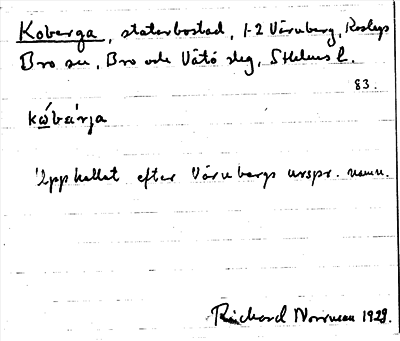 Koberga, statarbostad, 1-2 Vårnberg, Roslags
Bro sn, Bro och Vätö slg, Sthlms l.
83.
kω̄́bærja
Upp kallat efter Vårnbergs urspr. namn.
Richard Norrman 1929.